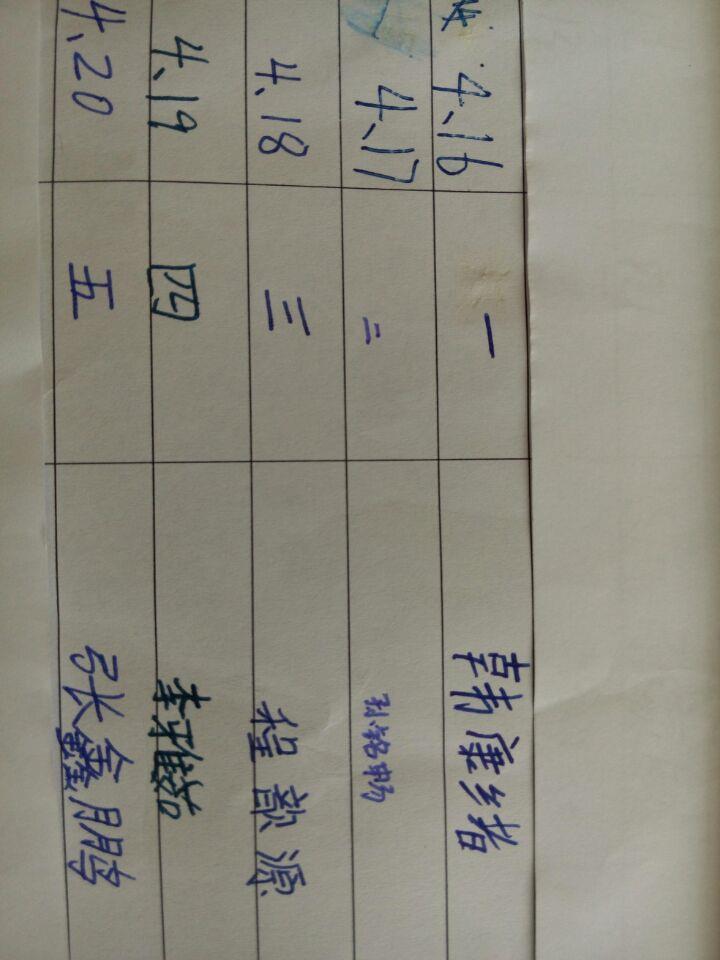 4.16 一 韩康绪
4.17 二
4.18 三 程歆源
4.19 四 李雅茹
4.20 五 张鑫鹏